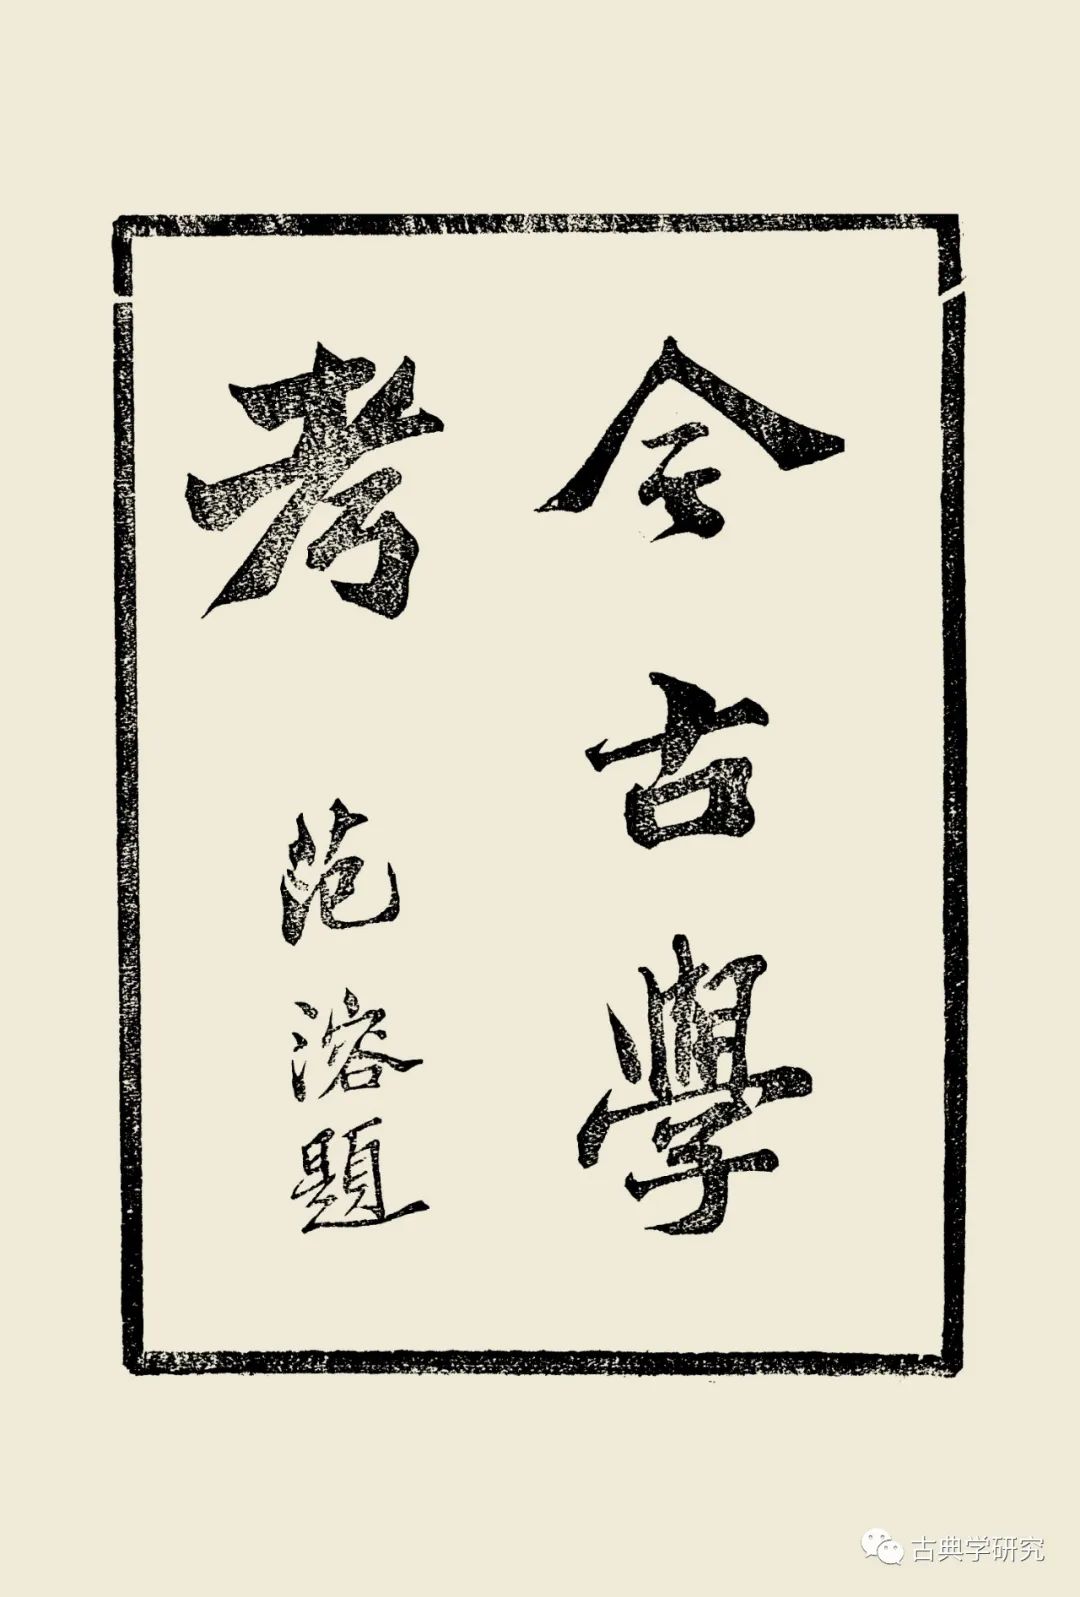 今古學
考
范溶題
古典学研究